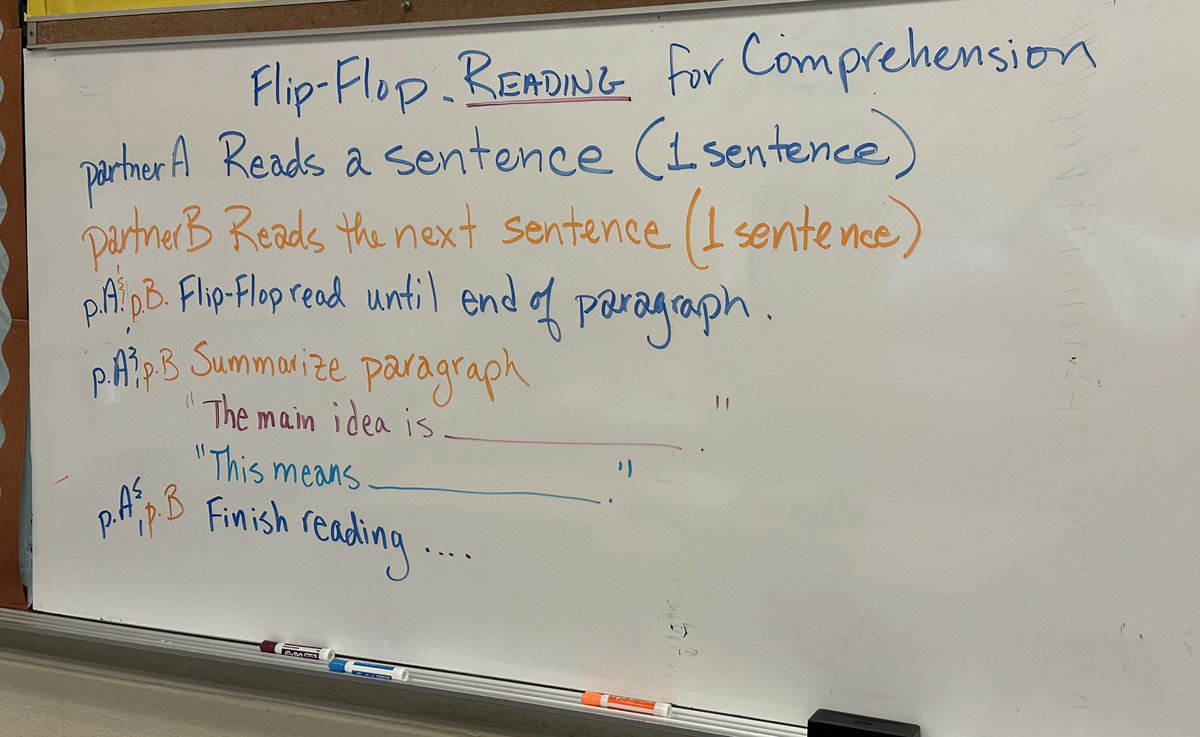 Flip-Flop - READING for Comprehension
partner A Reads a sentence (1 sentence)
partner B Reads the next sentence (1 sentence)
p.A & p.B. Flip-Flop read until end of paragraph.
p.A & p.B Summarize paragraph
"The main idea is ____________________."
"This means ____________________."
p.A & p.B Finish reading ....